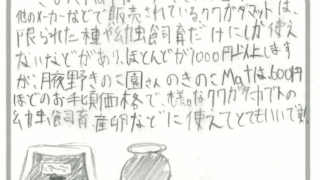 他のメーカーなどで販売されているクワガタマットは、
限られた種や幼虫飼育だけにしか使え
ないなどがあり、ほとんどが1000円以上します
が、月夜野きのこ園さんのきのこMatは、600円
ほどのお手頃価格で、様々なクワガタ・カブトの
幼虫飼育、産卵などに使えてとてもいいです。